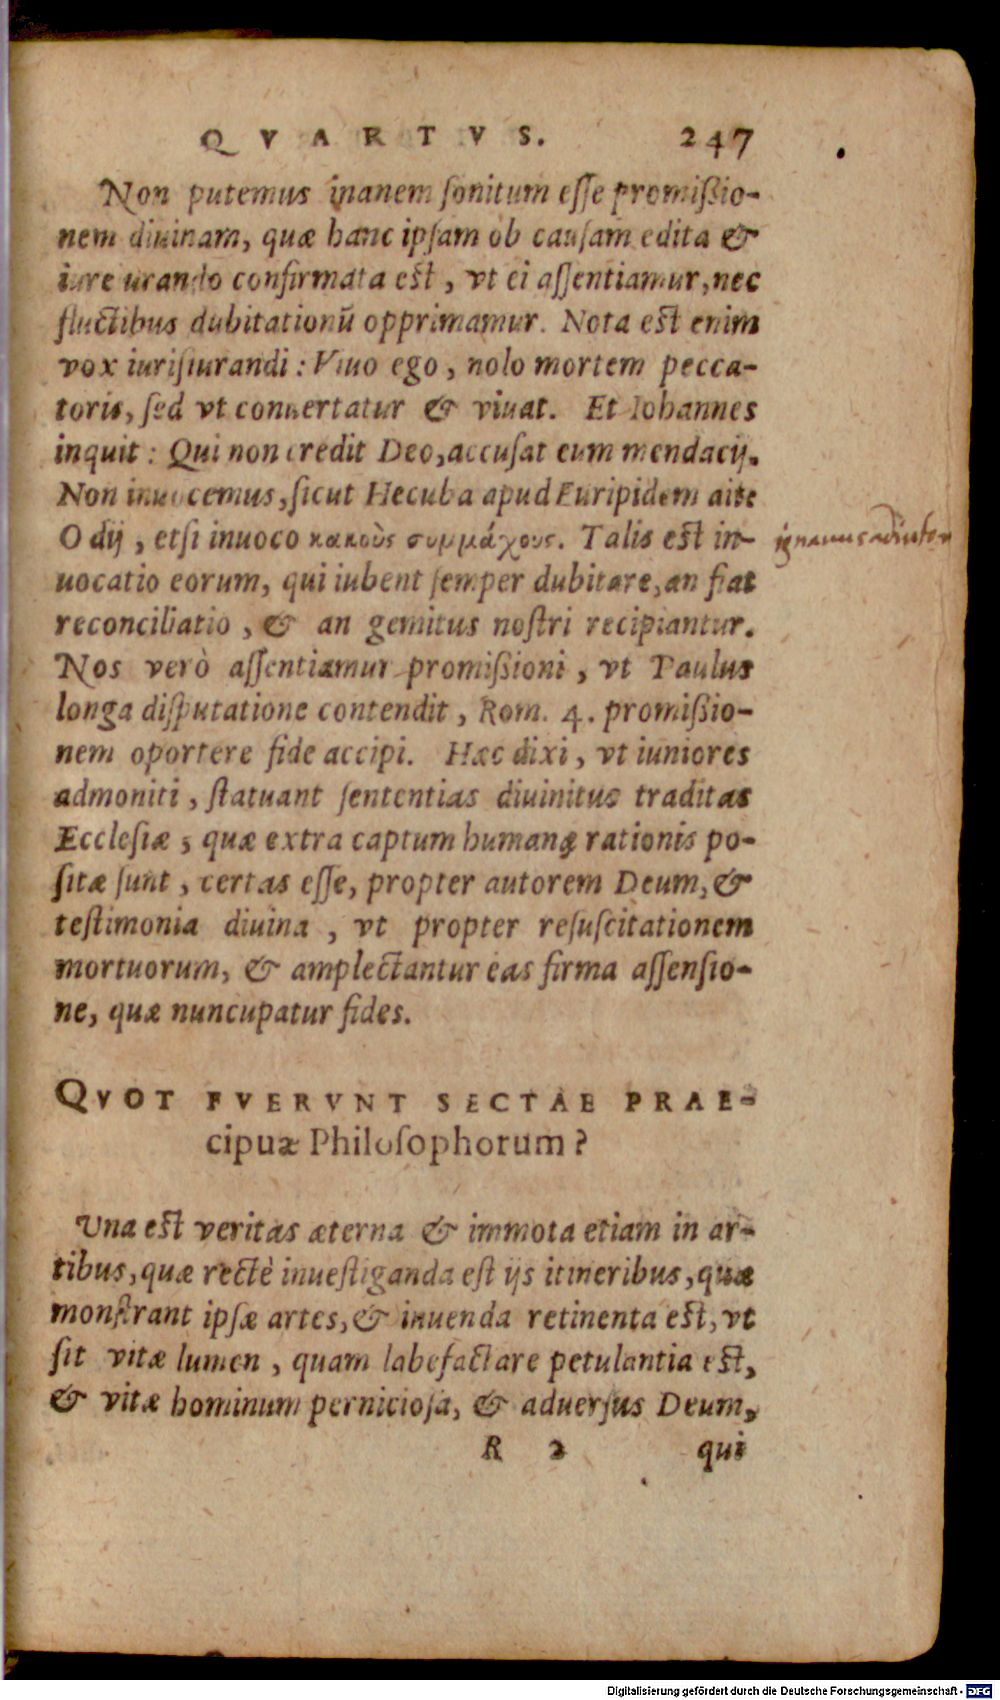 QVARTVS. 247
Non putemus inanem ſonitum eſſe promißio-
nem diuinam, quæ hanc ipſam ob cauſam edita &
iure iurando confirmata eſt, vt ei aſſentiamur, nec
fluctibus dubitationũ opprimamur. Nota eſt enim
vox iuriſiurandi: Viuo ego, nolo mortem pecca-
toris, ſed vt conuertatur & viuat. Et Iohannes
inquit: Qui non credit Deo, accuſat eum mendacij.
Non inuocemus, ſicut Hecuba apud Euripidem ait:
O dij, etſi inuoco κακοὺς συμμάχους. Talis eſt in-
ignauus adiutor
uocatio eorum, qui iubent ſemper dubitare, an fiat
reconciliatio, & an gemitus noſtri recipiantur.
Nos verò aſſentiamur promißioni, vt Paulus
longa diſputatione contendit, Rom. 4. promißio-
nem oportere fide accipi. Hæc dixi, vt iuniores
admoniti, ſtatuant ſententias diuinitus traditas
Eccleſiæ, quæ extra captum humanę rationis po-
ſitæ ſunt, certas eſſe, propter autorem Deum, &
teſtimonia diuina, vt propter reſuſcitationem
mortuorum, & amplectantur eas firma aſſenſio-
ne, quæ nuncupatur fides.
QVOT FVERVNT SECTAE PRAE-
cipuæ Philoſophorum?
Una eſt veritas æterna & immota etiam in ar-
tibus, quæ rectè inueſtiganda eſt ijs itineribus, quæ
monſtrant ipſæ artes, & inuenda retinenta eſt, vt
ſit vitæ lumen, quam labefactare petulantia eſt,
& vitæ hominum pernicioſa, & aduerſus Deum,
R 2 qui
Digitalisierung gefördert durch die Deutsche Forschungsgemeinschaft - DFG